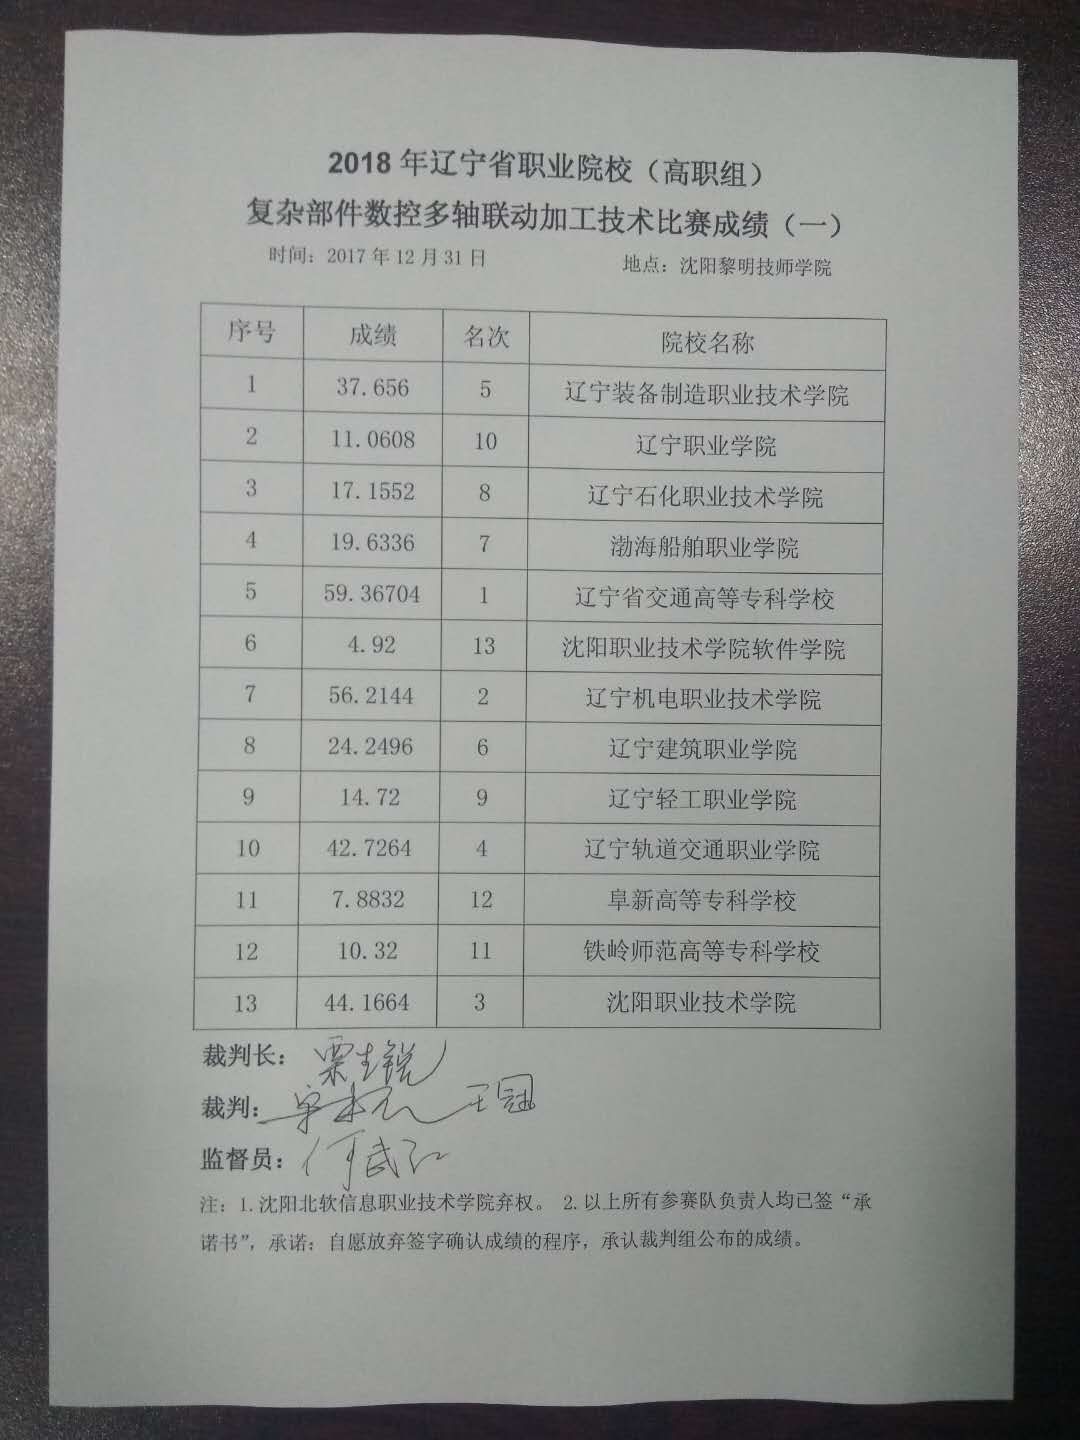 2018 年辽宁省职业院校（高职组）
复杂部件数控多轴联动加工技术比赛成绩（一）
时间：2017 年 12 月 31 日 地点：沈阳黎明技师学院
序号 成绩 名次 院校名称
1 37.656 5 辽宁装备制造职业技术学院
2 11.0608 10 辽宁职业学院
3 17.1552 8 辽宁石化职业技术学院
4 19.6336 7 渤海船舶职业学院
5 59.36704 1 辽宁省交通高等专科学校
6 4.92 13 沈阳职业技术学院软件学院
7 56.2144 2 辽宁机电职业技术学院
8 24.2496 6 辽宁建筑职业学院
9 14.72 9 辽宁轻工职业学院
10 42.7264 4 辽宁轨道交通职业学院
11 7.8832 12 阜新高等专科学校
12 10.32 11 铁岭师范高等专科学校
13 44.1664 3 沈阳职业技术学院
裁判长：
裁判： 王冠
监督员： 何武红
注：1.沈阳北软信息职业技术学院弃权。 2.以上所有参赛队负责人均已签“承
诺书”，承诺：自愿放弃签字确认成绩的程序，承认裁判组公布的成绩。